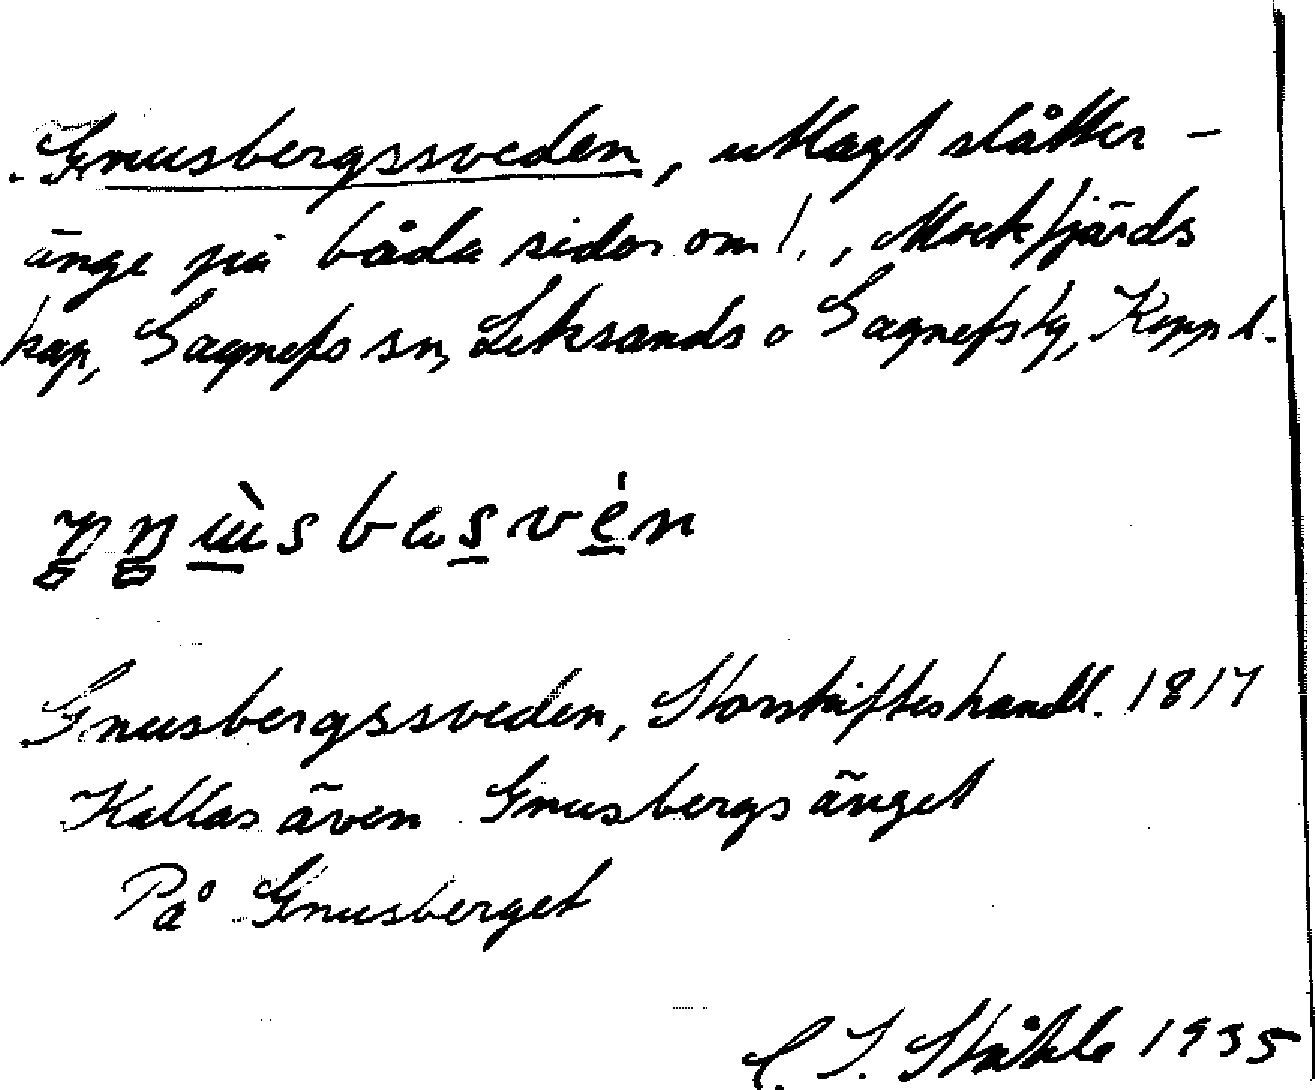 Gnusbergssveden, utlagt slåtter-
änge på båda sidor om l., Mockfjärds
kap, Gagnefs sn, Leksands o Gagnefs tg, Kopp l.
Gnusbergssveden, Storskifteshandl. 1817
Kallas även Gnusbergsänget
På Gnusberget
C. I. Ståhle 1935